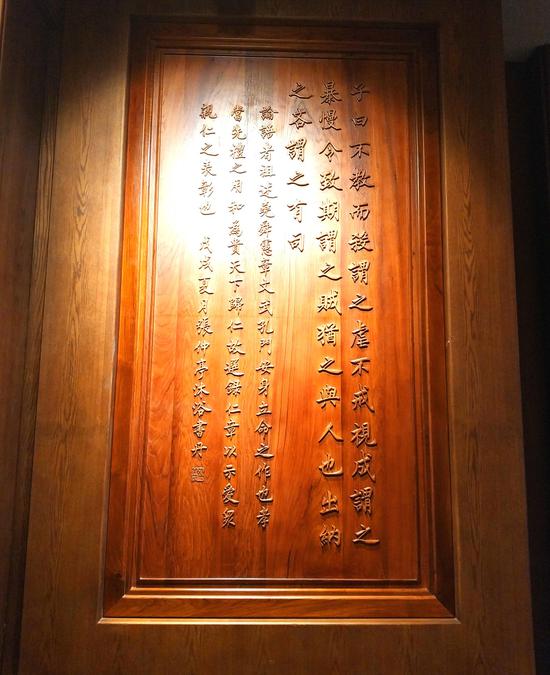 子曰不教而殺謂之虐不戒視成謂之
暴慢令致期謂之賊猶之與人也出納
之吝謂之有司
論語者祖述堯舜憲章文武孔門安身立命之作也孝
當先禮之用和為貴天下歸仁故選錄仁章以示愛眾
親仁之表影也 戊戌夏月張仲亭沐浴書丹